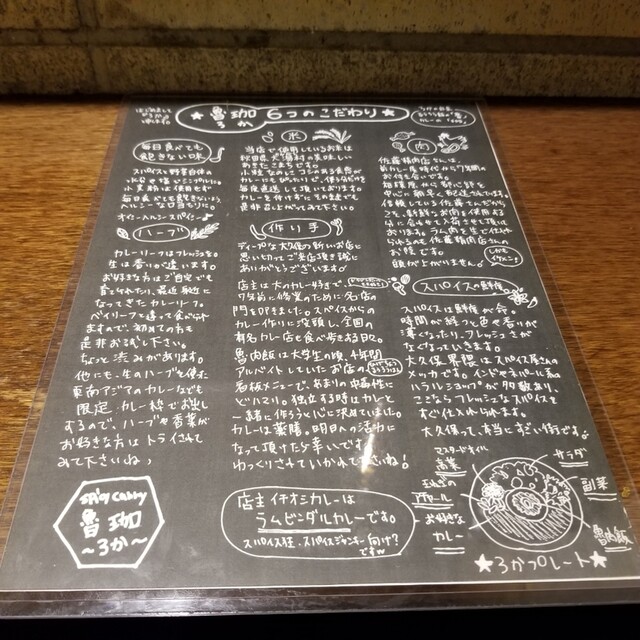 ★魯珈 6つのこだわり★
ろか
毎日食べても
飽きない味
スパイスと野菜自体の
小麦粉は使用せず
ハーブ
カレーリーフはフレッシュを。
生は香りが違います。
お好きな方はご自宅でも
育てられたり、最近身近に
なってきたカレーリーフ。
ベイリーフと違って食べられ
ますので、初めての方も
是非お試し下さい。
ちょっと渋みがあります。
他にも、生のハーブを使った
東南アジアのカレーなども
限定カレー枠でお出し
するので、ハーブや香菜が
お好きな方はトライされて
みて下さいね♪
SPICY CURRY
魯珈
～ろか～
米
当店で使用しているお米は
秋田県大潟村の美味しい
あきたこまちです。
小粒なのにコシのある食感が
カレーにもぴったりで、
毎度直送して頂いております。
カレーを付けずにそのままでも
是非召し上がってみて下さい。
作り手
ディープな大久保の新しいお店に
思い切ってご来店頂き誠に
ありがとうございます♪
店主は大のカレー好きで、
7年前に修業のために名店の
門を叩きました。スパイスからの
カレー作りに没頭し、全国の
有名カレー店を食べ歩きまくり。
魯肉飯は大学生の頃、4年間
アルバイトしていたお店の
看板メニューで、あまりの中毒性に
どハマり。独立する時はカレーと
一緒に作ろうと心に決めていました。
カレーは薬膳。明日への活力に
なって頂けたら幸いです♪
ゆっくりされていかれて下さいね!
店主イチオシカレーは
ラムビンダルカレーです。
スパイス狂・スパイスジャンキー向け?
ですw
肉
佐藤精肉店さんは、
前カレー屋時代から7年間の
お付き合いです。
相模原から都心部を
中心に朝早く配送して
信頼している佐藤さんだから
こそ、新鮮なお肉を使用する
ラム肉も生で仕入れ
られるのも佐藤精肉店さんの
お陰です。
頭が上がりません♪
しかも
イケメン♪
スパイスの鮮度
スパイスは鮮度が命。
時間が経つと色や香りが
薄くなったり、フレッシュさが
なくなっていきます。
大久保界隈はスパイス屋さんの
メッカです。インドやネパール系の
ハラルショップが多数あり、
ここならフレッシュなスパイスを
すぐ仕入れられます。
大久保って、本当にすごい街です♪
マスタードオイル
高菜
玉ねぎの
アチャール
お好きな
カレー
サラダ
副菜
魯肉飯
★ろかプレート★